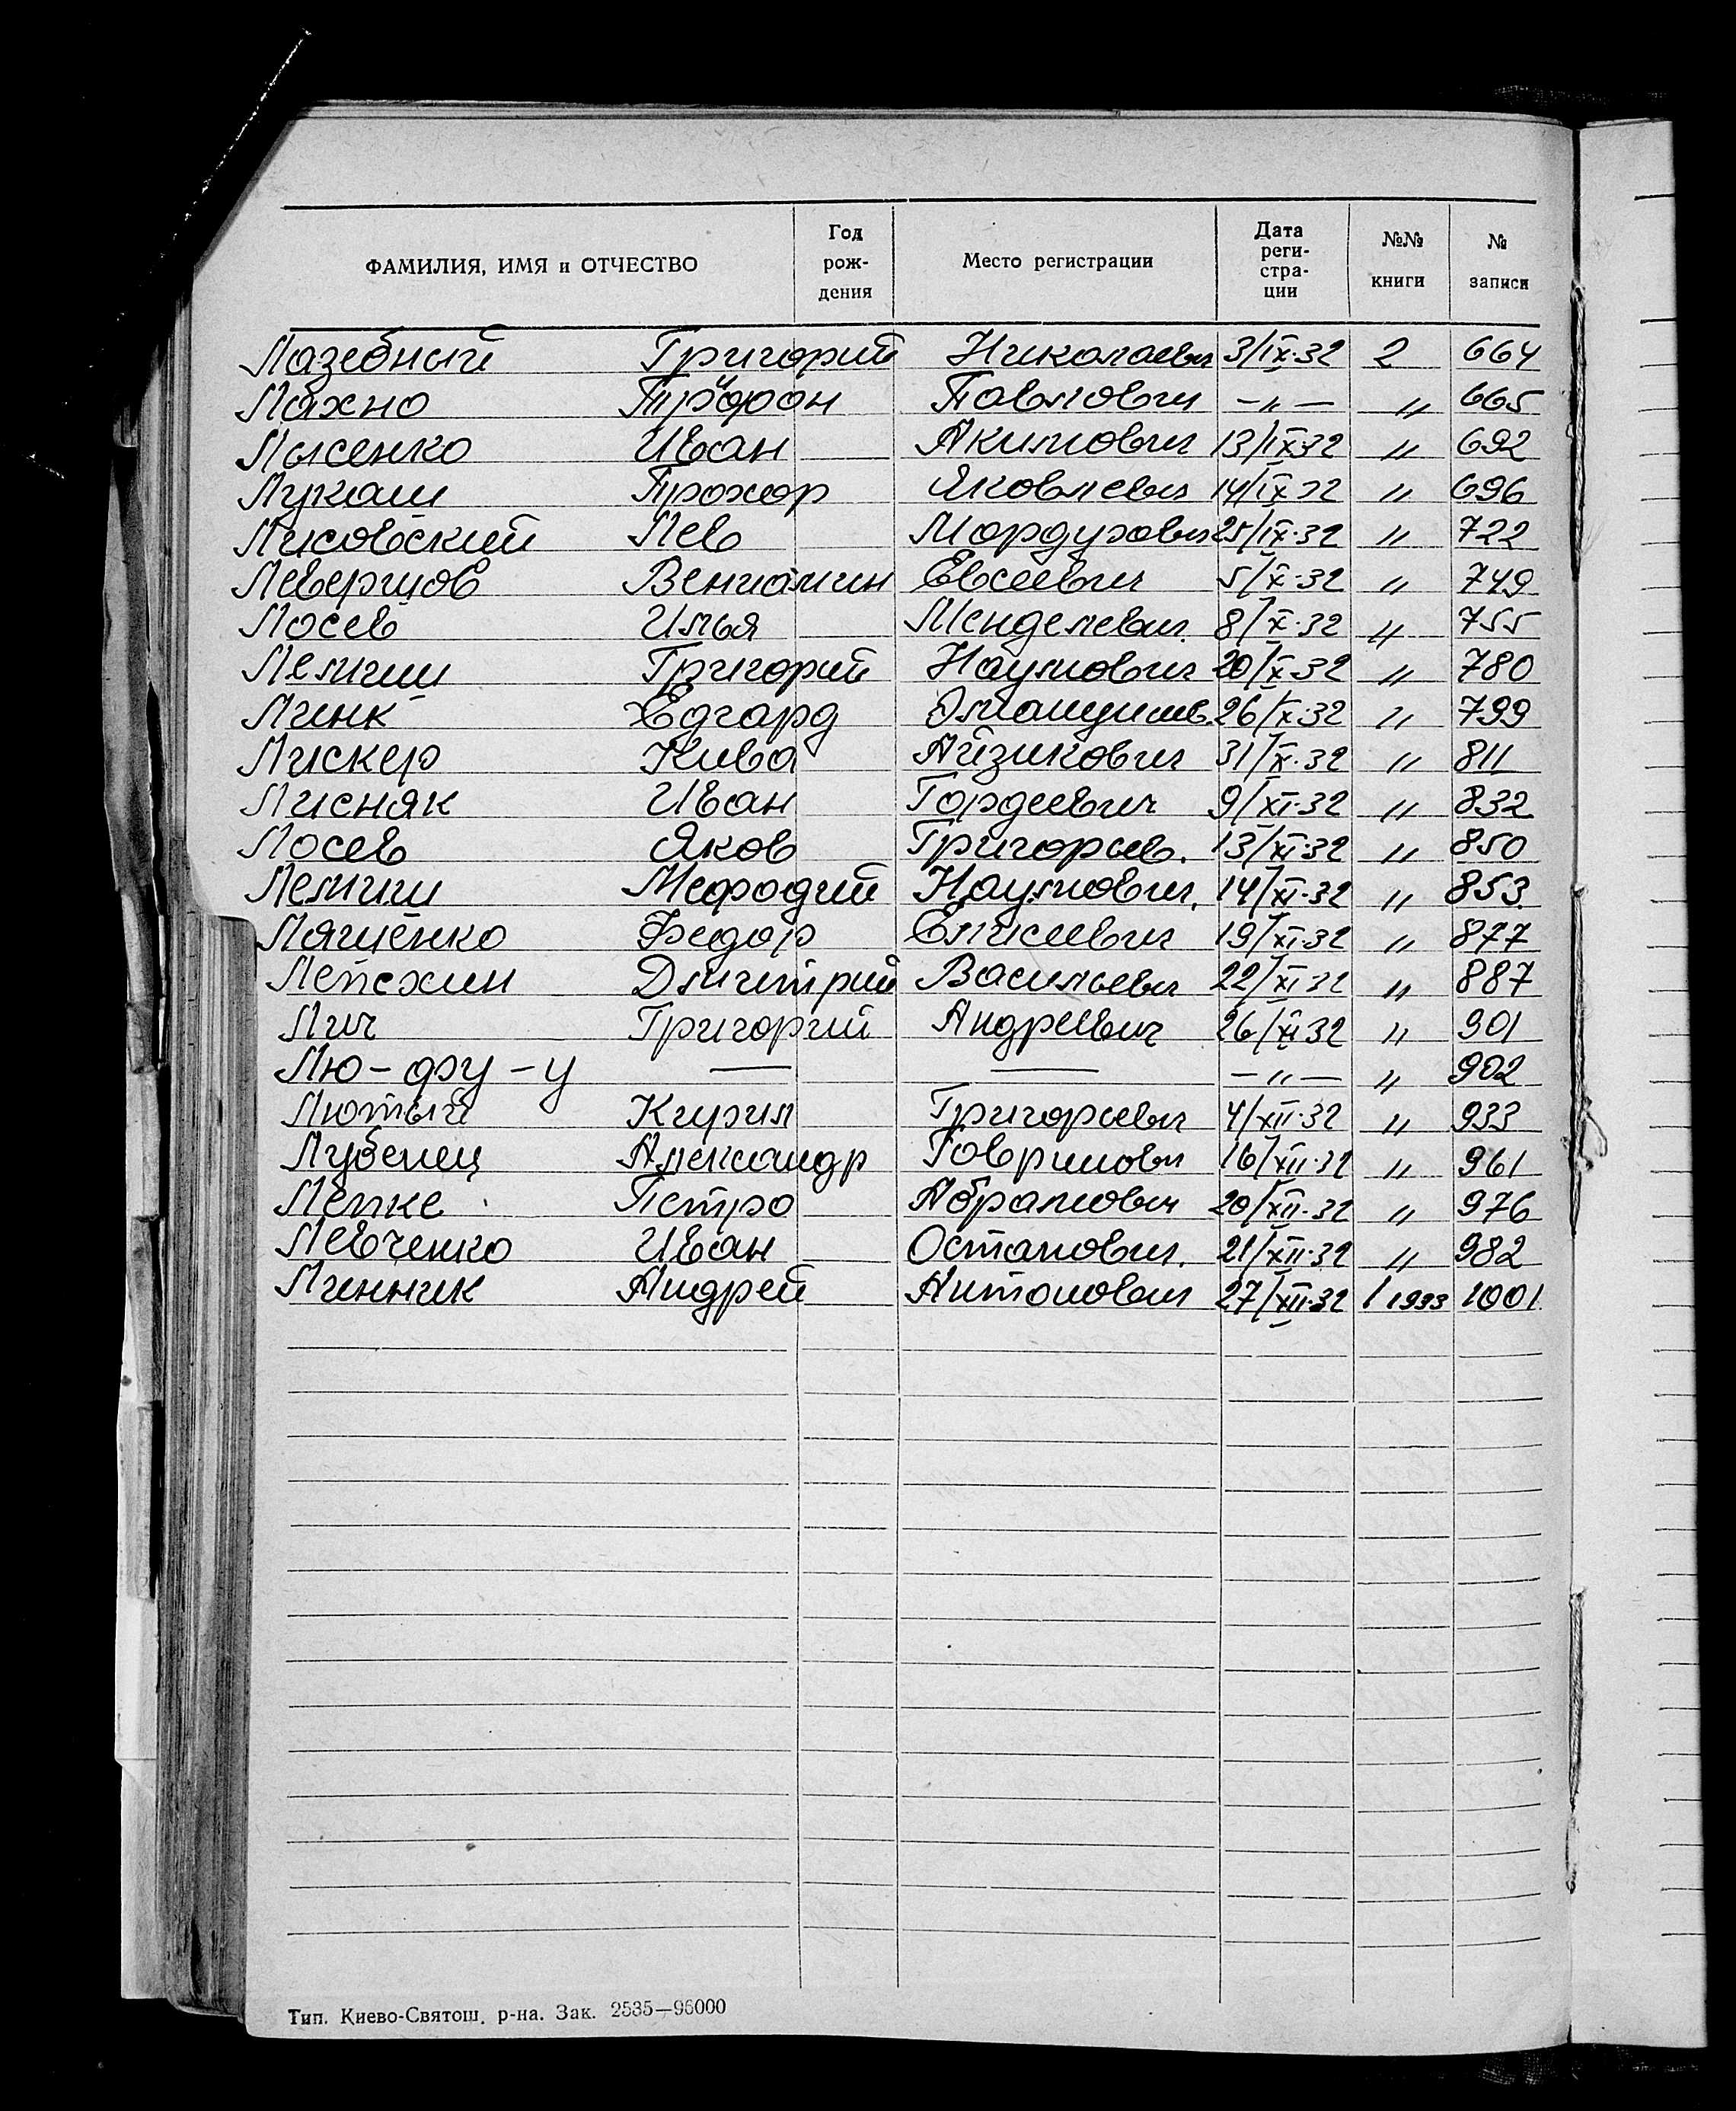 ФАМИЛИЯ, ИМЯ и ОТЧЕСТВО Год рождения Место регистрации Дата регистрации №№ книги № записи
Лазебный Григорий Николаевич 3/IX-32 2 664
Лахно Трифон Павлович —„— „ 665
Лысенко Иван Акимович 13/IX-32 „ 692
Лукаш Прохор Яковлевич 14/IX 32 „ 696
Лисовский Лев Мордухович 25/IX-32 „ 722
Леверцов Вениамин Евсеевич 5/X-32 „ 749
Лосев Илья Менделевич. 8/X-32 „ 755
Лемиш Григорий Наумович 20/X-32 „ 780
Линк Едгард 26/X-32 „ 799
Лискер Кива Айзикович 31/X-32 „ 811
Лисняк Иван Гордеевич 9/XI-32 „ 832
Лосев Яков Григорьев. 13/XI-32 „ 850
Лемиш Мефодий Наумович. 14/XI-32 „ 853.
Лященко Федор Елисеевич 19/XI-32 „ 877
Лепехин Дмитрий Васильевич 22/XI-32 „ 887
Лич Григорий Андреевич 26/XI 32 „ 901
Лю-фу-у — — —„— „ 902
Лютый Кирил Григорьевич 4/XII-32 „ 933
Лубенец Александр Гаврилович 16/XII-32 „ 961
Лепке Петро Абрамович 20/XII-32 „ 976
Левченко Иван Остапович. 21/XII-32 „ 982
Линник Андрей Антонович 27/XII-32 1 1933 1001
Тип. Киево-Святош. р-на. Зак. 2535—96000